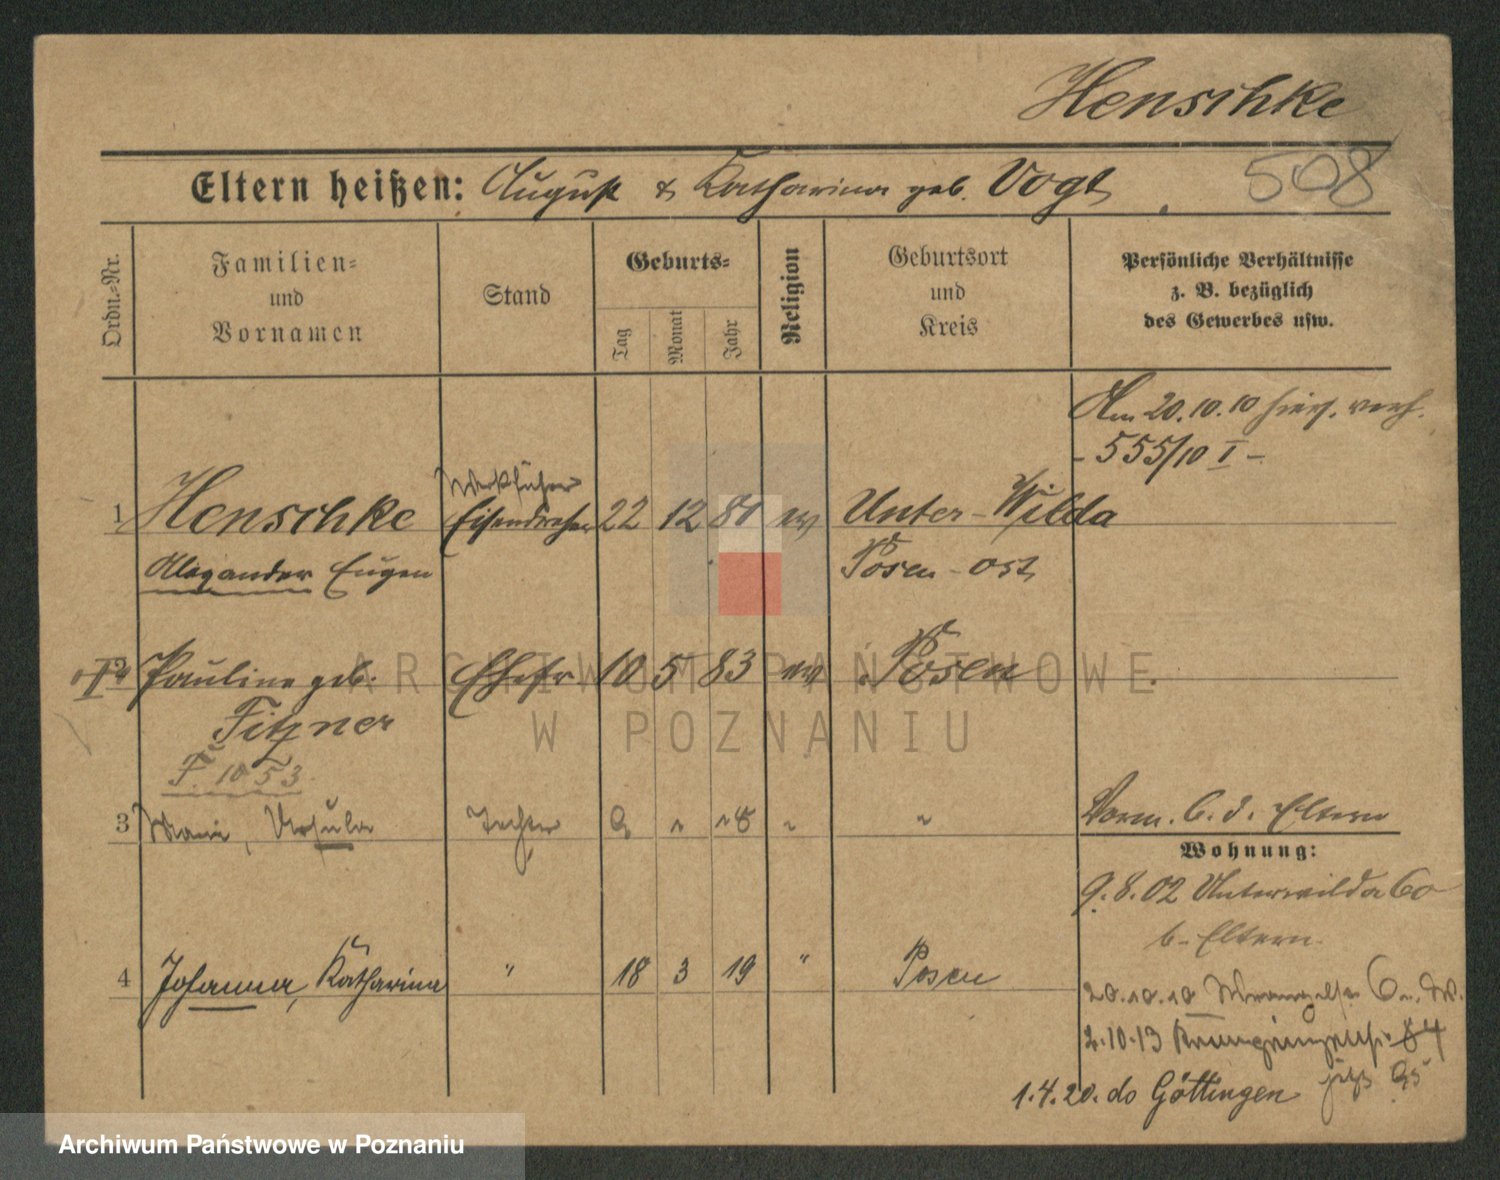 Henschke
508
Eltern heißen: August & Katharina geb. Vogt
Ordn.-Nr.
Familien-
und
Vornamen
Stand
Geburts-
Tag
Monat
Jahr
Religion
Geburtsort
und
Kreis
Persönliche Verhältnisse
z. B. bezüglich
des Gewerbes usw.
Am 20.10.10 hier verh.
- 555/10 I -
Werkführer
1 Henschke Eisendreher 22 12 81 ev Unter-Wilda
Alexander Eugen Posen-Ost
Pauline geb. Ehefr. 10 5 83 ev Posen
Fitzner
F. 1053
3 Ursula Tochter 9 " 18 " "
Vorm. b. d. Eltern
Wohnung:
9.8.02 Unterwilda 60
b. Eltern
4 Johanna, Katharina " 18 3 19 " Posen
20.10.10
2.10.13 Kronprinzenstr. 84
jetzt 95
1.4.20. do Göttingen
ARCHIWUM PAŃSTWOWE
W POZNANIU
Archiwum Państwowe w Poznaniu